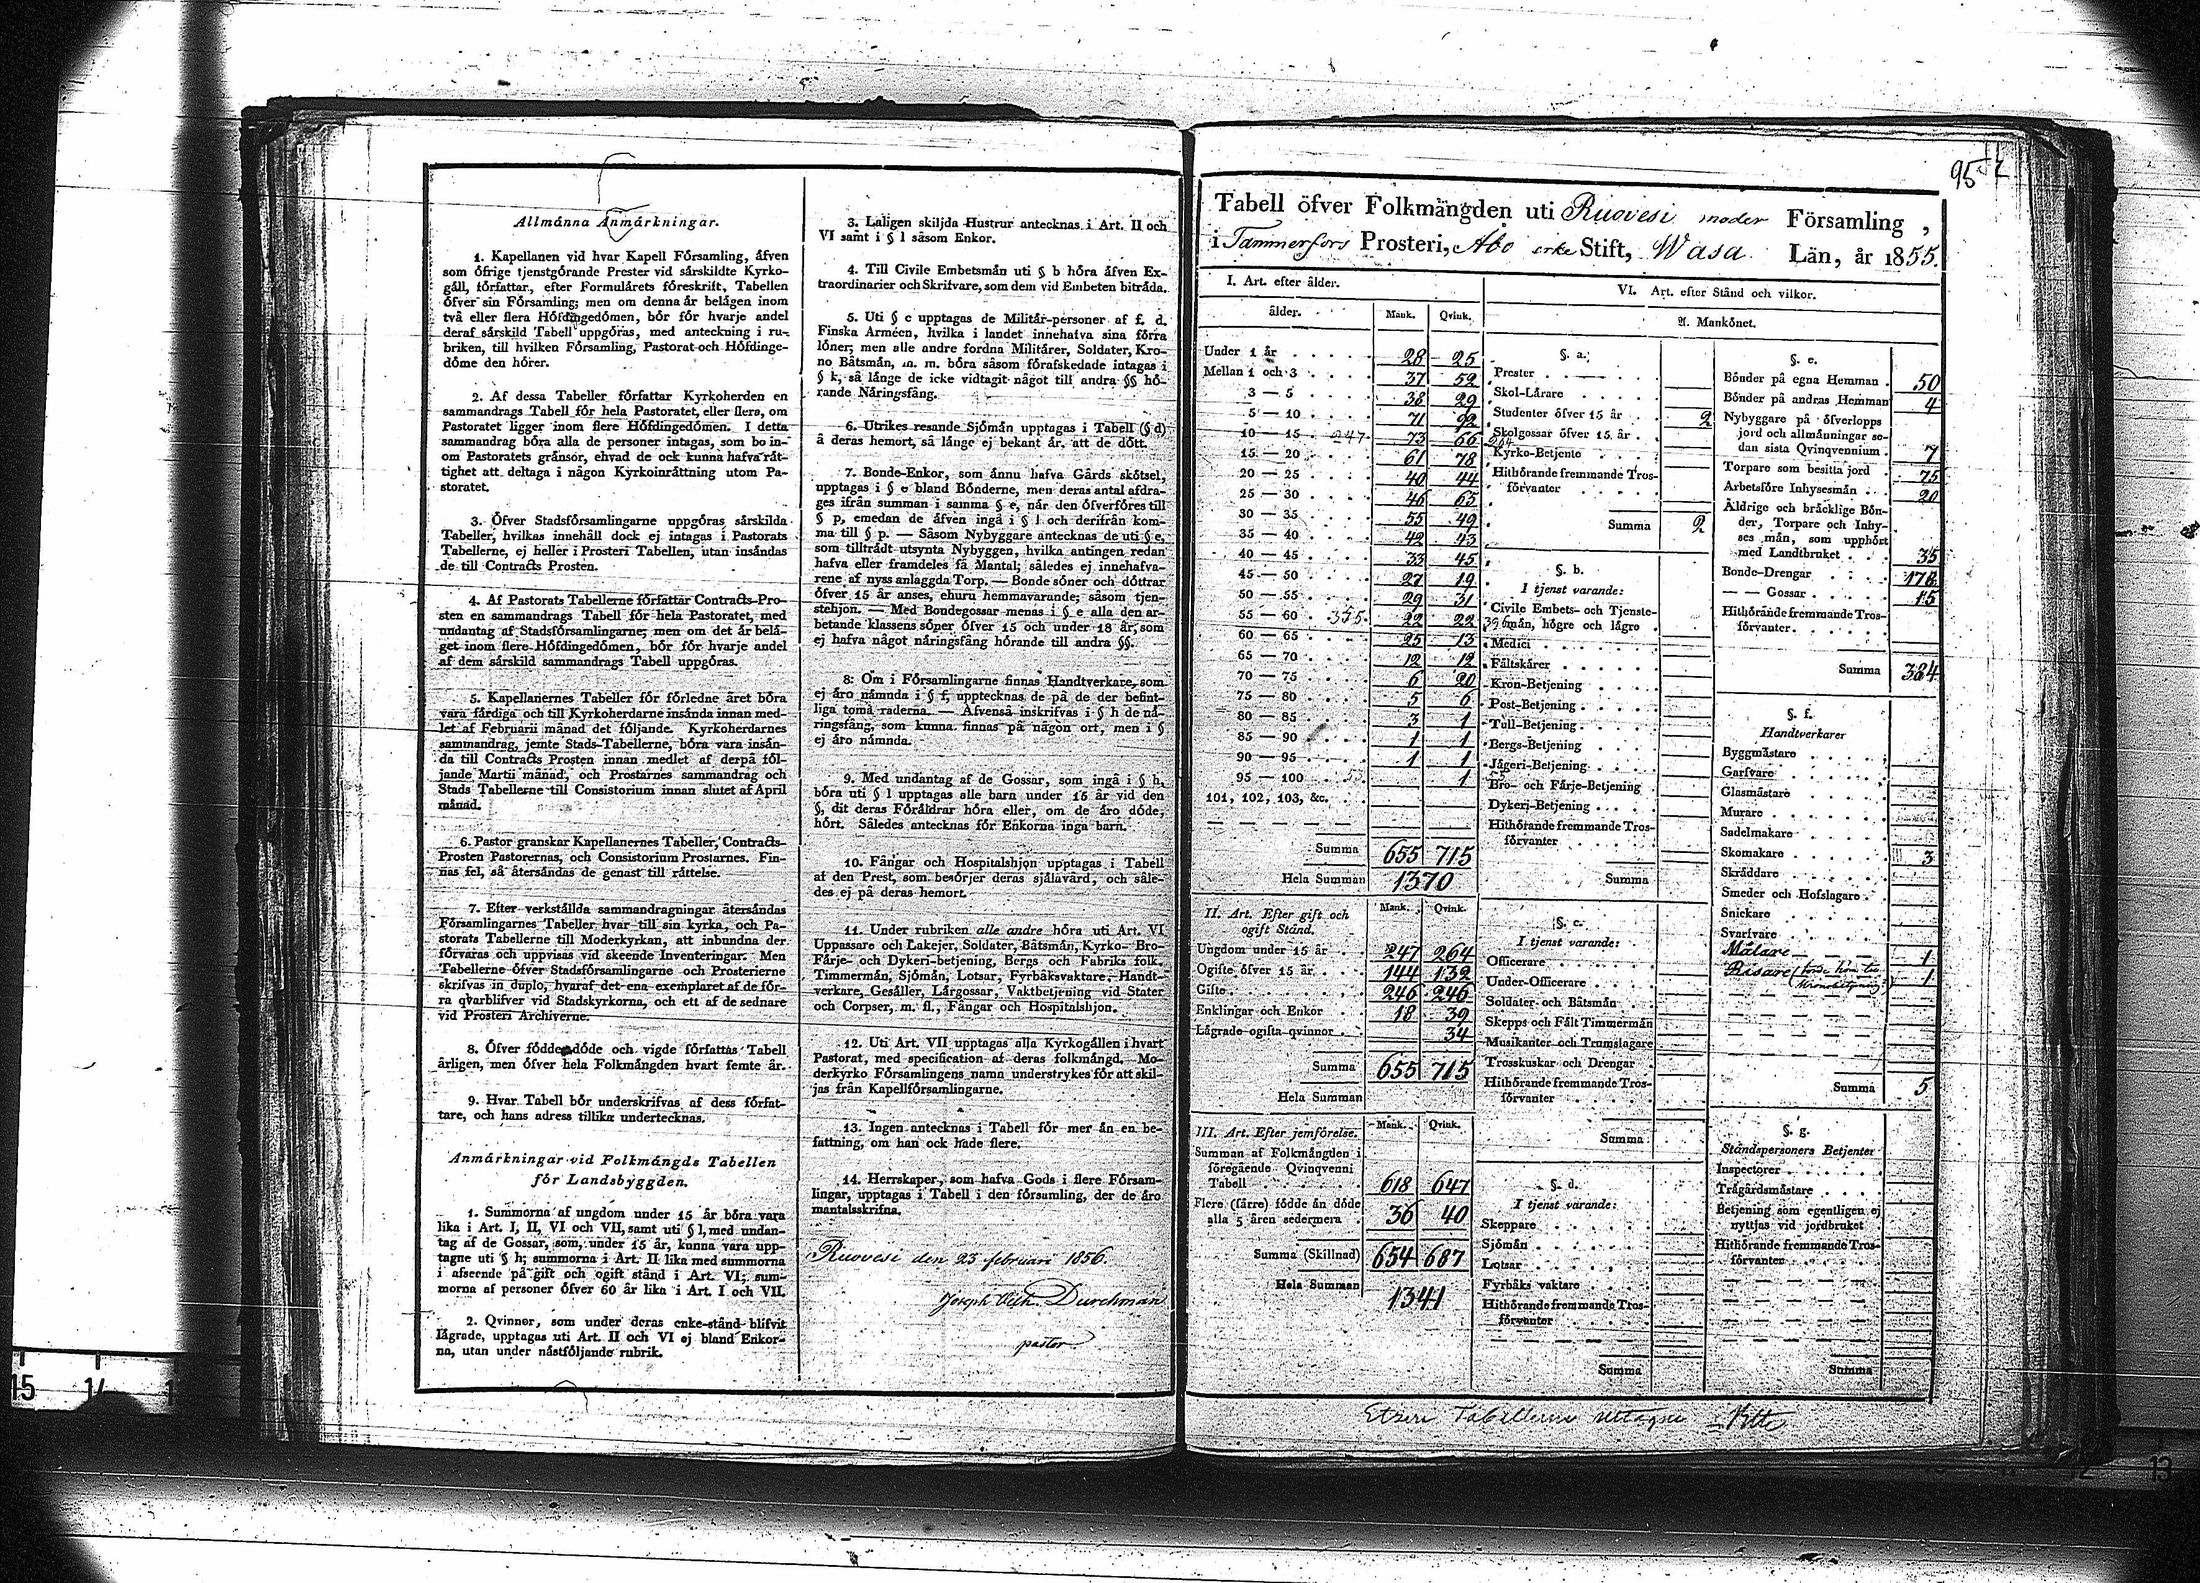 Allmänna Anmärkningar.
1. Kapellanen vid hvar Kapell Församling, äfven
som öfrige tjenstgörande Prester vid särskildte Kyrko-
gäll, författar, efter Formulärets föreskrift, Tabellen
öfver sin Församling; men om denna är belägen inom
två eller flera Höfdingedömen, bör för hvarje andel
deraf särskild Tabell uppgöras, med anteckning i ru-
briken, till hvilken Församling, Pastorat och Höfdinge-
döme den hörer.
2. Af dessa Tabeller författar Kyrkoherden en
sammandrags Tabell för hela Pastoratet, eller flera, om
Pastoratet ligger inom flere Höfdingedömen. I detta
sammandrag böra alla de personer intagas, som bo in-
om Pastoratets gränsor, ehvad de ock kunna hafva rät-
tighet att deltaga i någon Kyrkoinrättning utom Pa-
storatet.
3. Öfver Stadsförsamlingarne uppgöras särskilda
Tabeller, hvilkas innehåll dock ej intagas i Pastorats
Tabellerne, ej heller i Prosteri Tabellen, utan insändas
de till Contracts Prosten.
4. Af Pastorats Tabellerne författar Contracts-Pro-
sten en sammandrags Tabell för hela Pastoratet, med
undantag af Stadsförsamlingarne; men om det är belä-
get inom flere Höfdingedömen, bör för hvarje andel
af dem särskild sammandrags Tabell uppgöras.
5. Kapellanernes Tabeller för förledne året böra
vara färdiga och till Kyrkoherdarne insända innan med-
let af Februarii månad det följande. Kyrkoherdarnes
sammandrag, jemte Stads-Tabellerne, böra vara insän-
da till Contracts Prosten innan medlet af derpå föl-
jande Martii månad, och Prostarnes sammandrag och
Stads Tabellerne till Consistorium innan slutet af April
månad.
6. Pastor granskar Kapellanernes Tabeller, Contracts-
Prosten Pastorernas, och Consistorium Prostarnes. Fin-
nas fel, så återsändas de genast till rättelse.
7. Efter verkställda sammandragningar återsändas
Församlingarnes Tabeller hvar till sin kyrka, och Pa-
storats Tabellerne till Moderkyrkan, att inbundna der
förvaras och uppvisas vid skeende Inventeringar. Men
Tabellerne öfver Stadsförsamlingarne och Prosterierne
skrifvas in duplo, hvaraf det ena exemplaret af de för-
ra qvarblifver vid Stadskyrkorna, och ett af de sednare
vid Prosteri Archiverne.
8. Öfver födde döde och vigde författas Tabell
årligen, men öfver hela Folkmängden hvart femte år.
9. Hvar Tabell bör underskrifvas af dess författ-
tare, och hans adress tillika undertecknas.
Anmärkningar vid Folkmängds Tabellen
för Landsbyggden.
1. Summorna af ungdom under 15 år böra vara
lika i Art. I, II, VI och VII, samt uti § l, med undan-
tag af de Gossar, som, under 15 år, kunna vara upp-
tagne uti § h; summorna i Art. II lika med summorna
i afseende på gift och ogift stånd i Art. VI; sum-
morna af personer öfver 60 år lika i Art. I och VII.
2. Qvinnor, som under deras enke-stånd blifvit
lägrade, upptagas uti Art. II och VI ej bland Enkor-
na, utan under nästföljande rubrik.
3. Laligen skiljda Hustrur antecknas i Art. II och
VI samt i § l såsom Enkor.
4. Till Civile Embetsmän uti § b höra äfven Ex-
traordinarier och Skrifvare, som dem vid Embeten biträda.
5. Uti § c upptagas de Militär-personer af f. d.
Finska Arméen, hvilka i landet innehafva sina förra
löner; men alle andre fordna Militärer, Soldater, Kro-
no Båtsmän, m. m. böra såsom förafskedade intagas i
§ k, så länge de icke vidtagit något till andra §§ hö-
rande Näringsfång.
6. Utrikes resande Sjömän upptagas i Tabell (§ d)
å deras hemort, så länge ej bekant är, att de dött.
7. Bonde-Enkor, som ännu hafva Gårds skötsel,
upptagas i § e bland Bönderne, men deras antal afdra-
ges ifrån summan i samma § e, när den öfverföres till
§ p, emedan de äfven ingå i § l och derifrån kom-
ma till § p. — Såsom Nybyggare antecknas de uti § e,
som tillträdt utsynta Nybyggen, hvilka antingen redan
hafva eller framdeles få Mantal; således ej innehafva-
rene af nyss anlaggda Torp. — Bonde söner och döttrar
öfver 15 år anses, ehuru hemmavarande, såsom tjen-
stehjon. — Med Bondegossar menas i § e alla den ar-
betande klassens söner öfver 15 och under 18 år, som
ej hafva något näringsfång hörande till andra §§.
8. Om i Församlingarne finnas Handtverkare, som
ej äro nämnda i § f, upptecknas de på de der befint-
liga toma raderna. — Äfvenså inskrifvas i § h de nä-
ringsfång, som kunna finnas på någon ort, men i §
ej äro nämnda.
9. Med undantag af de Gossar, som ingå i § h,
böra uti § l upptagas alle barn under 15 år vid den
§, dit deras Föräldrar höra eller, om de äro döde,
hört. Således antecknas för Enkorna inga barn.
10. Fångar och Hospitalshjon upptagas i Tabell
af den Prest, som besörjer deras själavård, och såle-
des ej på deras hemort.
11. Under rubriken alle andre höra uti Art. VI
Uppassare och Lakejer, Soldater, Båtsmän, Kyrko- Bro-
Färje- och Dykeri-betjening, Bergs och Fabriks folk,
Timmermän, Sjömän, Lotsar, Fyrbåksvaktare, Handt-
verkare, Gesäller, Lärgossar, Vaktbetjening vid Stater
och Corpser, m. fl., Fångar och Hospitalshjon.
12. Uti Art. VII upptagas alla Kyrkogällen i hvart
Pastorat, med specification af deras folkmängd. Mo-
derkyrko Församlingens namn understrykes för att skil-
jas från Kapellförsamlingarne.
13. Ingen antecknas i Tabell för mer än en be-
fattning, om han ock hade flere.
14. Herrskaper, som hafva Gods i flere Försam-
lingar, upptagas i Tabell i den församling, der de äro
mantalsskrifna.
Ruovesi den 23 februari 1856.
Joseph Wilh. Durchman
pastor
95
Tabell öfver Folkmängden uti Ruovesi moder Församling,
i Tammerfors Prosteri, Åbo erke Stift, Wasa Län, år 1855.
I. Art. efter ålder.
ålder. Mank. Qvink.
Under 1 år 28 25
Mellan 1 och 3 37 52
3 — 5 38 29
5 — 10 71 92
10 — 15 247 73 66 264
15 — 20 61 78
20 — 25 40 44
25 — 30 46 65
30 — 35 55 49
35 — 40 42 43
40 — 45 33 45
45 — 50 27 19
50 — 55 29 31
55 — 60 355 22 22 396
60 — 65 25 13
65 — 70 12 12
70 — 75 6 20
75 — 80 5 6
80 — 85 3 1
85 — 90 1 1
90 — 95 1 1
95 — 100 53 1
101, 102, 103, &c.
Summa 655 715
Hela Summan 1370
II. Art. Efter gift och
ogift Stånd. Mank. Qvink.
Ungdom under 15 år 247 264
Ogifte öfver 15 år 144 132
Gifte 246 246
Enklingar och Enkor 18 39
Lägrade ogifta qvinnor 34
Summa 655 715
Hela Summan
III. Art. Efter jemförelse. Mank. Qvink.
Summan af Folkmängden i
föregående Qvinqvenni
Tabell 618 647
Flere (färre) födde än döde
alla 5 åren sedermera 36 40
Summa (Skillnad) 654 687
Hela Summan 1341
VI. Art. efter Stånd och vilkor.
A. Mankönet.
§. a.
Prester
Skol-Lärare
Studenter öfver 15 år 2
Skolgossar öfver 15 år
Kyrko-Betjente
Hithörande fremmande Tros-
förvanter
Summa 2
§. b.
I tjenst varande:
Civile Embets- och Tjenste-
män, högre och lägre
Medici
Fältskärer
Kron-Betjening
Post-Betjening
Tull-Betjening
Bergs-Betjening
Jägeri-Betjening
Bro- och Färje-Betjening
Dykeri-Betjening
Hithörande fremmande Tros-
förvanter
Summa
§. c.
I tjenst varande:
Officerare
Under-Officerare
Soldater och Båtsmän
Skepps och Fält Timmermän
Musikanter och Trumslagare
Trosskuskar och Drengar
Hithörande fremmande Tros-
förvanter
Summa
§. d.
I tjenst varande:
Skeppare
Sjömän
Lotsar
Fyrbåks vaktare
Hithörande fremmande Tros-
förvanter
Summa
§. e.
Bönder på egna Hemman 50
Bönder på andras Hemman 4
Nybyggare på öfverlopps
jord och allmänningar se-
dan sista Qvinqvennium 7
Torpare som besitta jord 75
Arbetsföre Inhysesmän 20
Äldrige och bräcklige Bön-
der, Torpare och Inhy-
ses män, som upphört
med Landtbruket 35
Bonde-Drengar 178
— — Gossar 15
Hithörande fremmande Tros-
förvanter
Summa 384
§. f.
Handtverkarer
Byggmästare
Garfvare
Glasmästare
Murare
Sadelmakare
Skomakare 3
Skräddare
Smeder och Hofslagare
Snickare
Svarfvare
Målare 1
Risare 1
Summa 5
§. g.
Ståndspersoners Betjenter
Inspectorer
Trägårdsmästare
Betjening som egentligen ej
nyttjas vid jordbruket
Hithörande fremmande Tros-
förvanter
Summa
Etseri Tabellerne
15 14
12 13